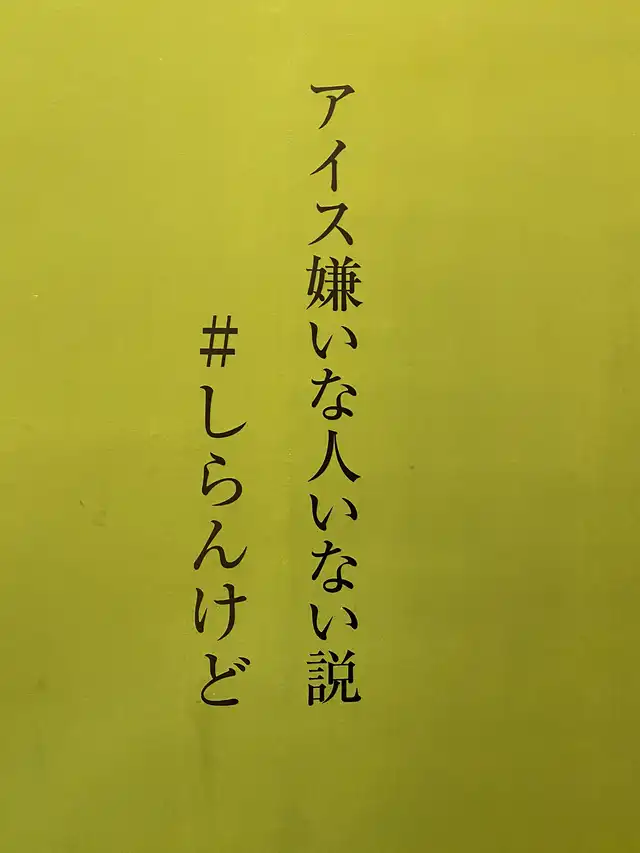 アイス嫌いな人いない説
#しらんけど